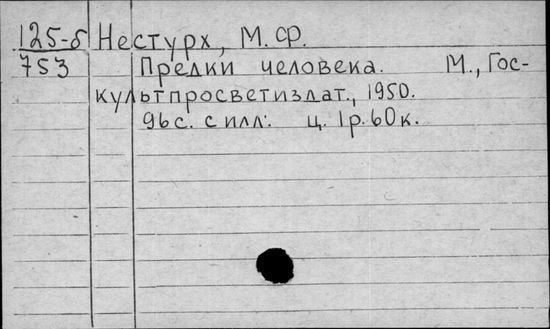 125-б Нестурх, М.Ф.
753 Предки человека. М., Гос-
культпросветиздат., 1950.
96с. с илл. ц. 1р.60к.